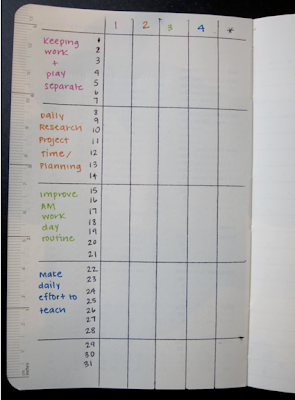 1 2 3 4 *
Keeping 1
work 2
+ 3
play 4
separate 5
6
7
Daily 8
Research 9
Project 10
Time/ 11
Planning 12
13
14
improve 15
AM 16
work 17
day 18
routine 19
20
21
Make 22
daily 23
effort to 24
teach 25
26
27
28
29
30
31